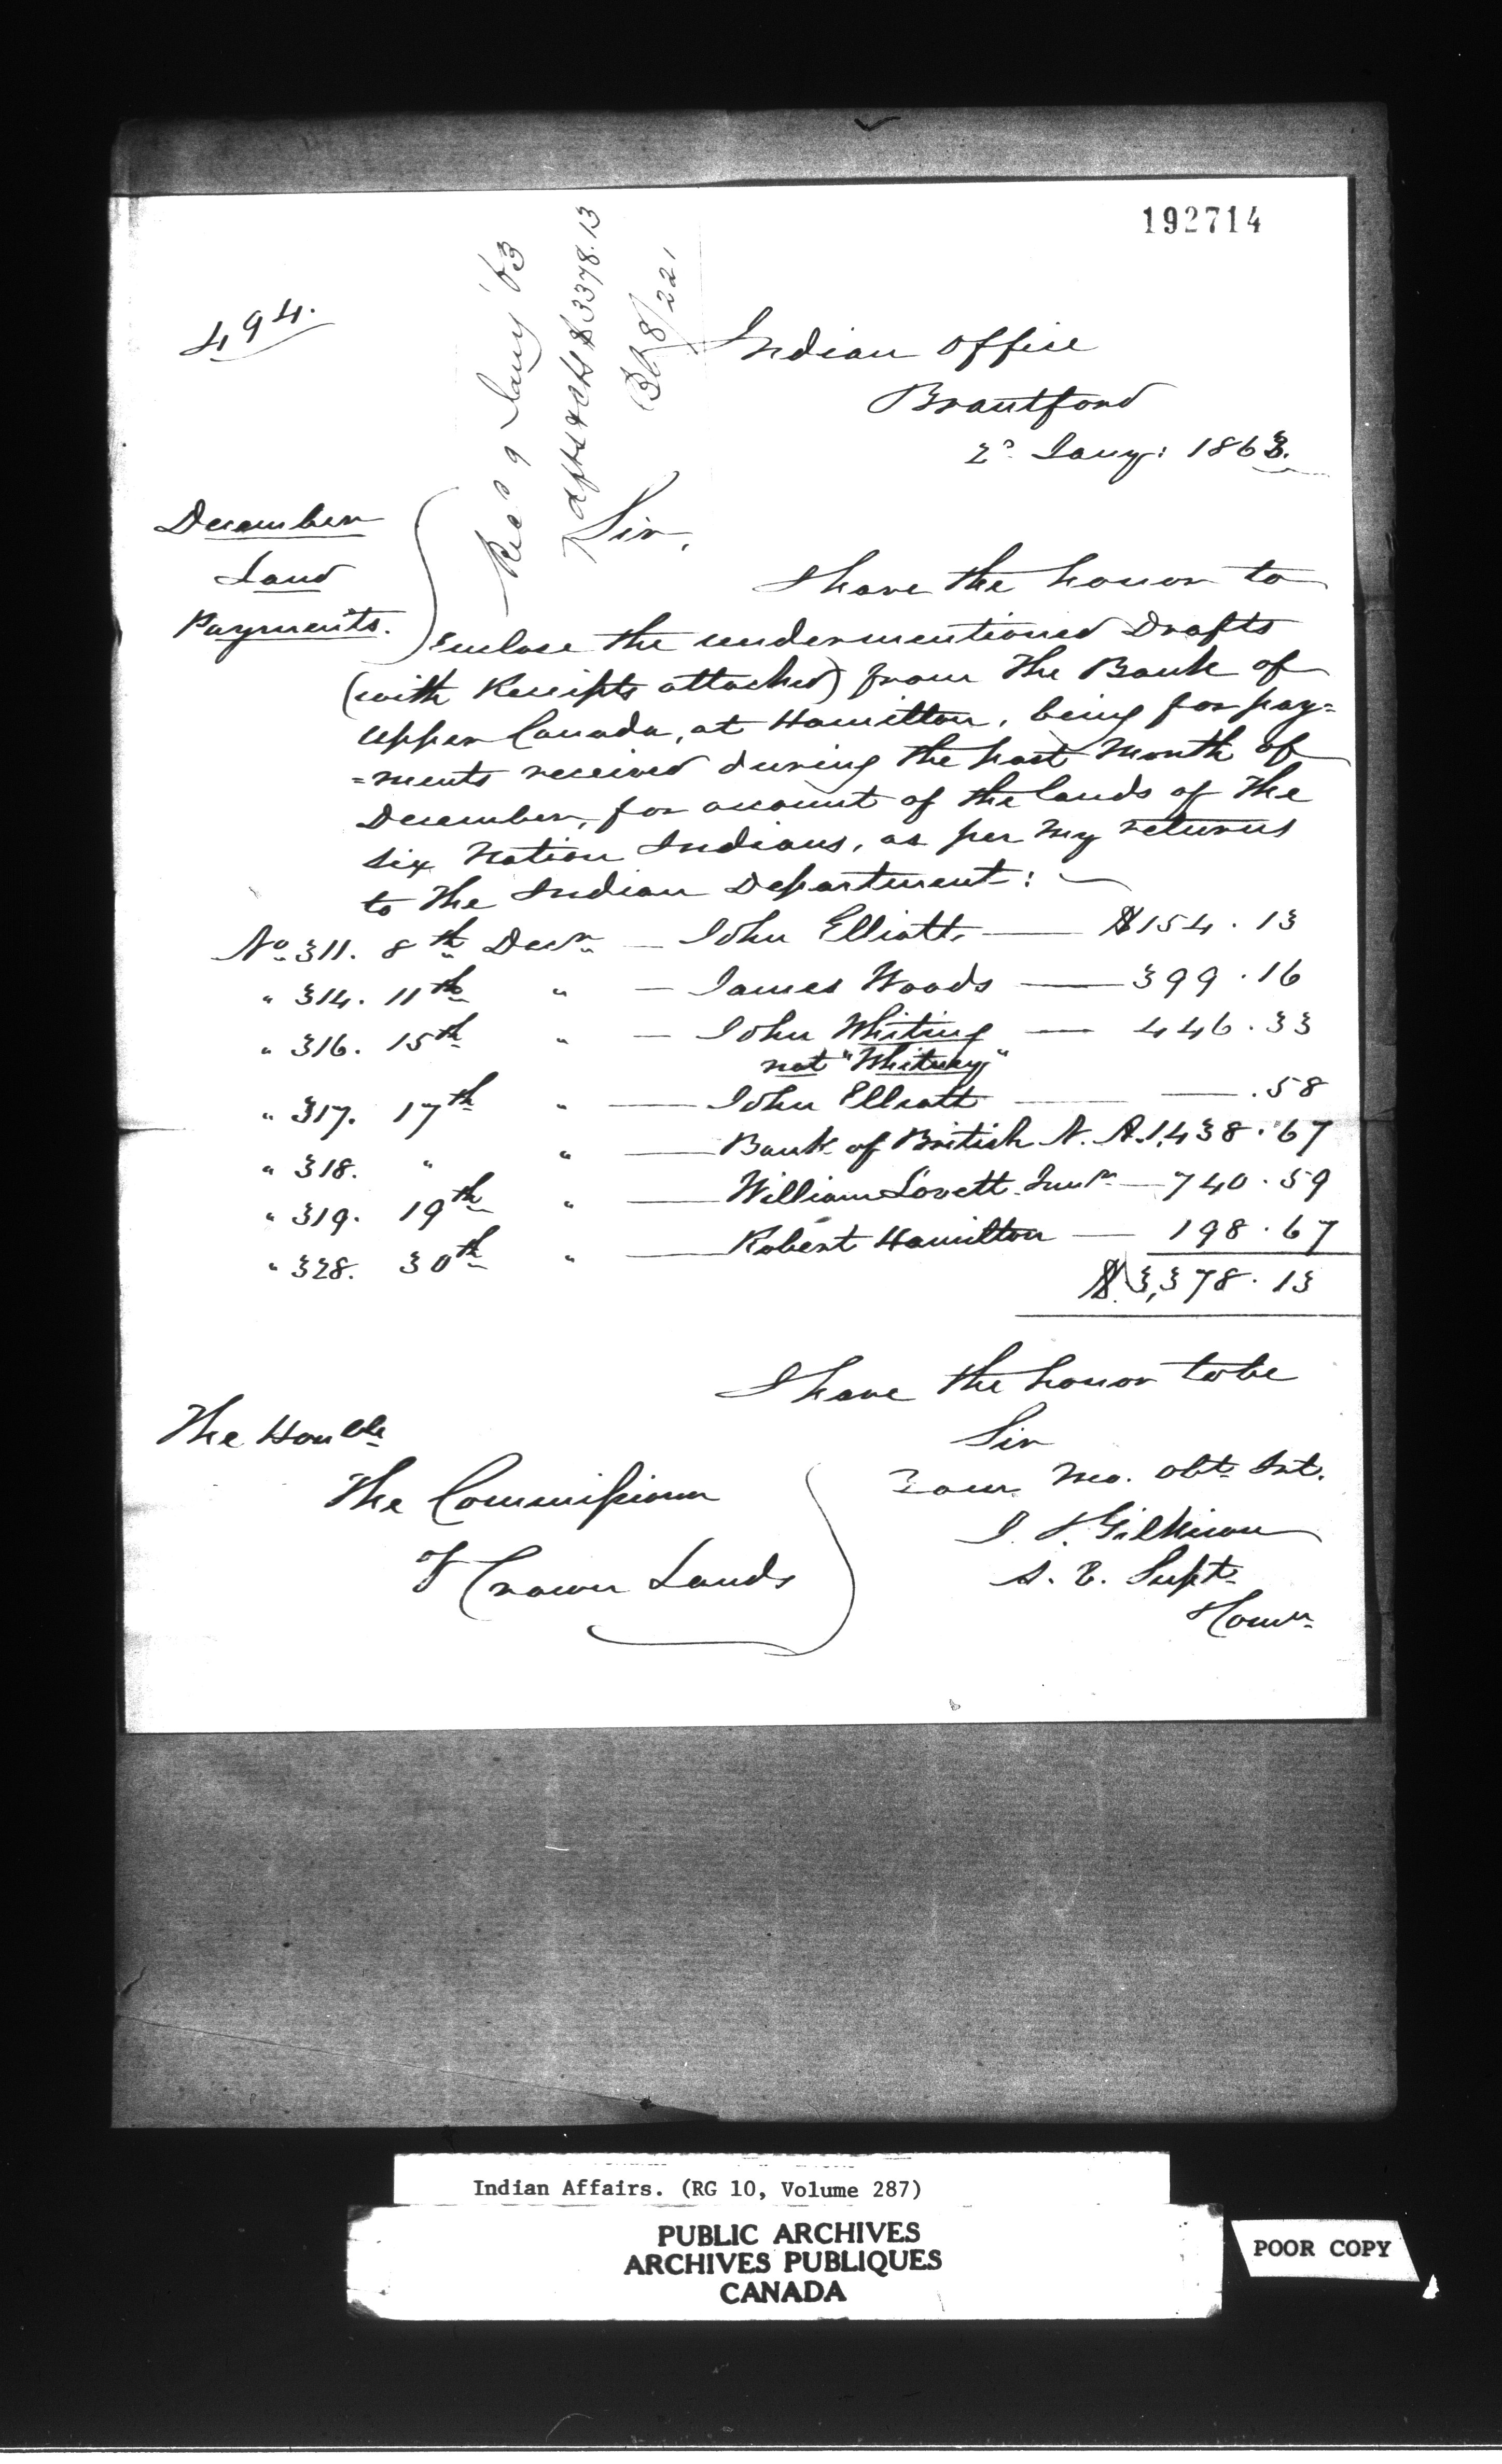 192714
494.
Rec 9 Jany '63
7 dfts & rcts $3378.13
Indian Office
Brantford
2d Jany: 1863.
December
Land
Payments.
Sir,
I have the honor to
enclose the undermentioned Drafts
(with Receipts attached) from the Bank of
Upper Canada, at Hamilton, being for pay=
=ments received during the past Month of
December, for account of the lands of the
Six Nation Indians, as per my returns
to the Indian Department:
No. 311. 8th Decr. — John Elliott — $154.13
" 314. 11th " — James Woods — 399.16
" 316. 15th " — John Whiting — 446.33
not "Whitney"
" 317. 17th " — John Elliott — .58
" 318. " " — Bank of British N. A. 1,438.67
" 319. 19th " — William Lovett Junr. — 740.59
" 328. 30th " — Robert Hamilton — 198.67
$3,378.13
I have the honor to be
Sir
Your Mo. Obt. Svt.
J. T. Gilkison
S. & V. Supt.
The Honble
The Commissioner
of Crown Lands
Indian Affairs. (RG 10, Volume 287)
PUBLIC ARCHIVES
ARCHIVES PUBLIQUES
CANADA
POOR COPY